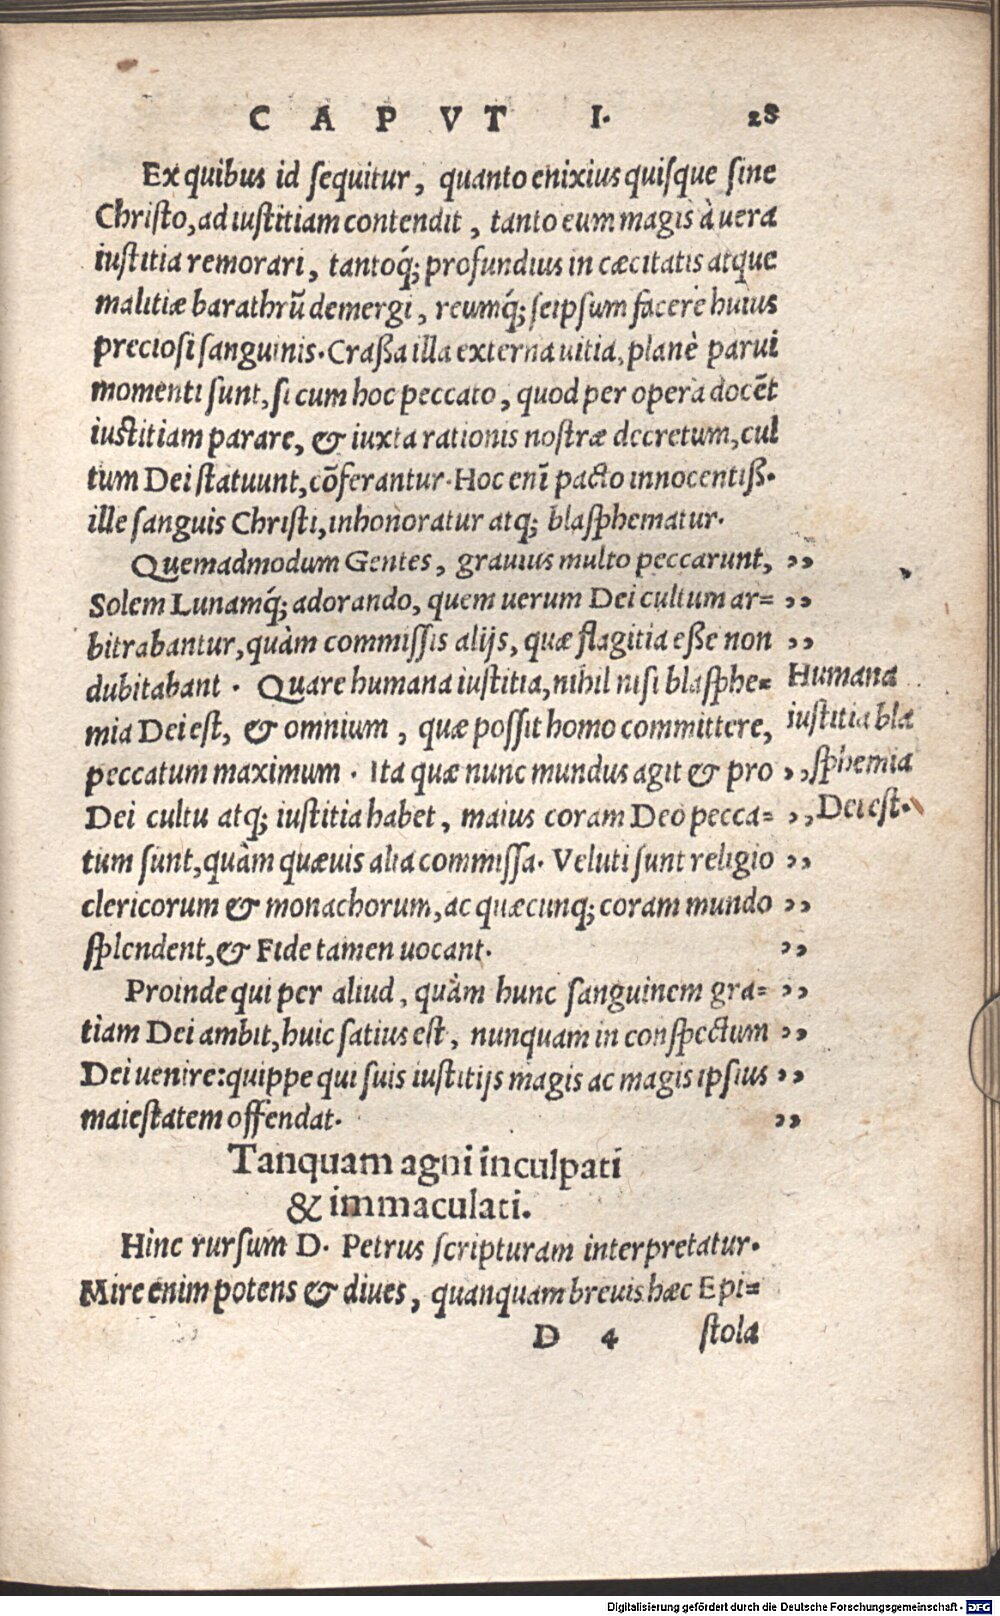 CAPVT I. 28
Ex quibus id sequitur, quanto enixius quisque sine
Christo, ad iustitiam contendit, tanto eum magis à uera
iustitia remorari, tantoq́; profundius in cæcitatis atque
malitiæ barathrũ demergi, reumq́; seipsum facere huius
preciosi sanguinis. Craßa illa externa uitia, planè parui
momenti sunt, si cum hoc peccato, quod per opera docẽt
iustitiam parare, & iuxta rationis nostræ decretum, cul
tum Dei statuunt, cõferantur. Hoc enĩ pacto innocentiß.
ille sanguis Christi, inhonoratur atq; blasphematur.
Quemadmodum Gentes, grauius multo peccarunt, ,,
Solem Lunamq́; adorando, quem uerum Dei cultum ar= ,,
bitrabantur, quàm commissis alijs, quæ flagitia eße non ,,
dubitabant. Quare humana iustitia, nihil nisi blasphe= Humana
mia Dei est, & omnium, quæ possit homo committere, iustitia bla
peccatum maximum. Ita quæ nunc mundus agit & pro ,,sphemia
Dei cultu atq; iustitia habet, maius coram Deo pecca= ,,Dei est.
tum sunt, quàm quæuis alia commissa. Veluti sunt religio ,,
clericorum & monachorum, ac quæcunq; coram mundo ,,
splendent, & Fide tamen uocant. ,,
Proinde qui per aliud, quàm hunc sanguinem gra= ,,
tiam Dei ambit, huic satius est, nunquam in conspectum ,,
Dei uenire: quippe qui suis iustitijs magis ac magis ipsius ,,
maiestatem offendat. ,,
Tanquam agni inculpati
& immaculati.
Hinc rursum D. Petrus scripturam interpretatur.
Mire enim potens & diues, quanquam breuis hæc Epi=
D 4 stola
Digitalisierung gefördert durch die Deutsche Forschungsgemeinschaft - DFG